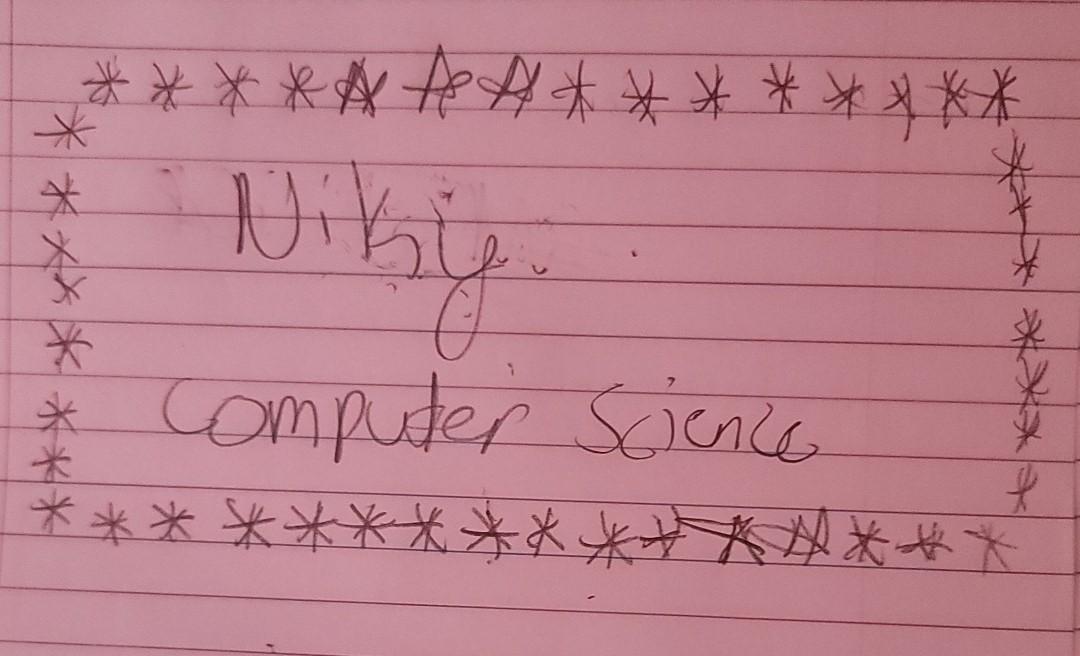 * * * * * * * * * * * * * * *
Nikiy.
Computer Science
* * * * * * * * * * * * * * * *